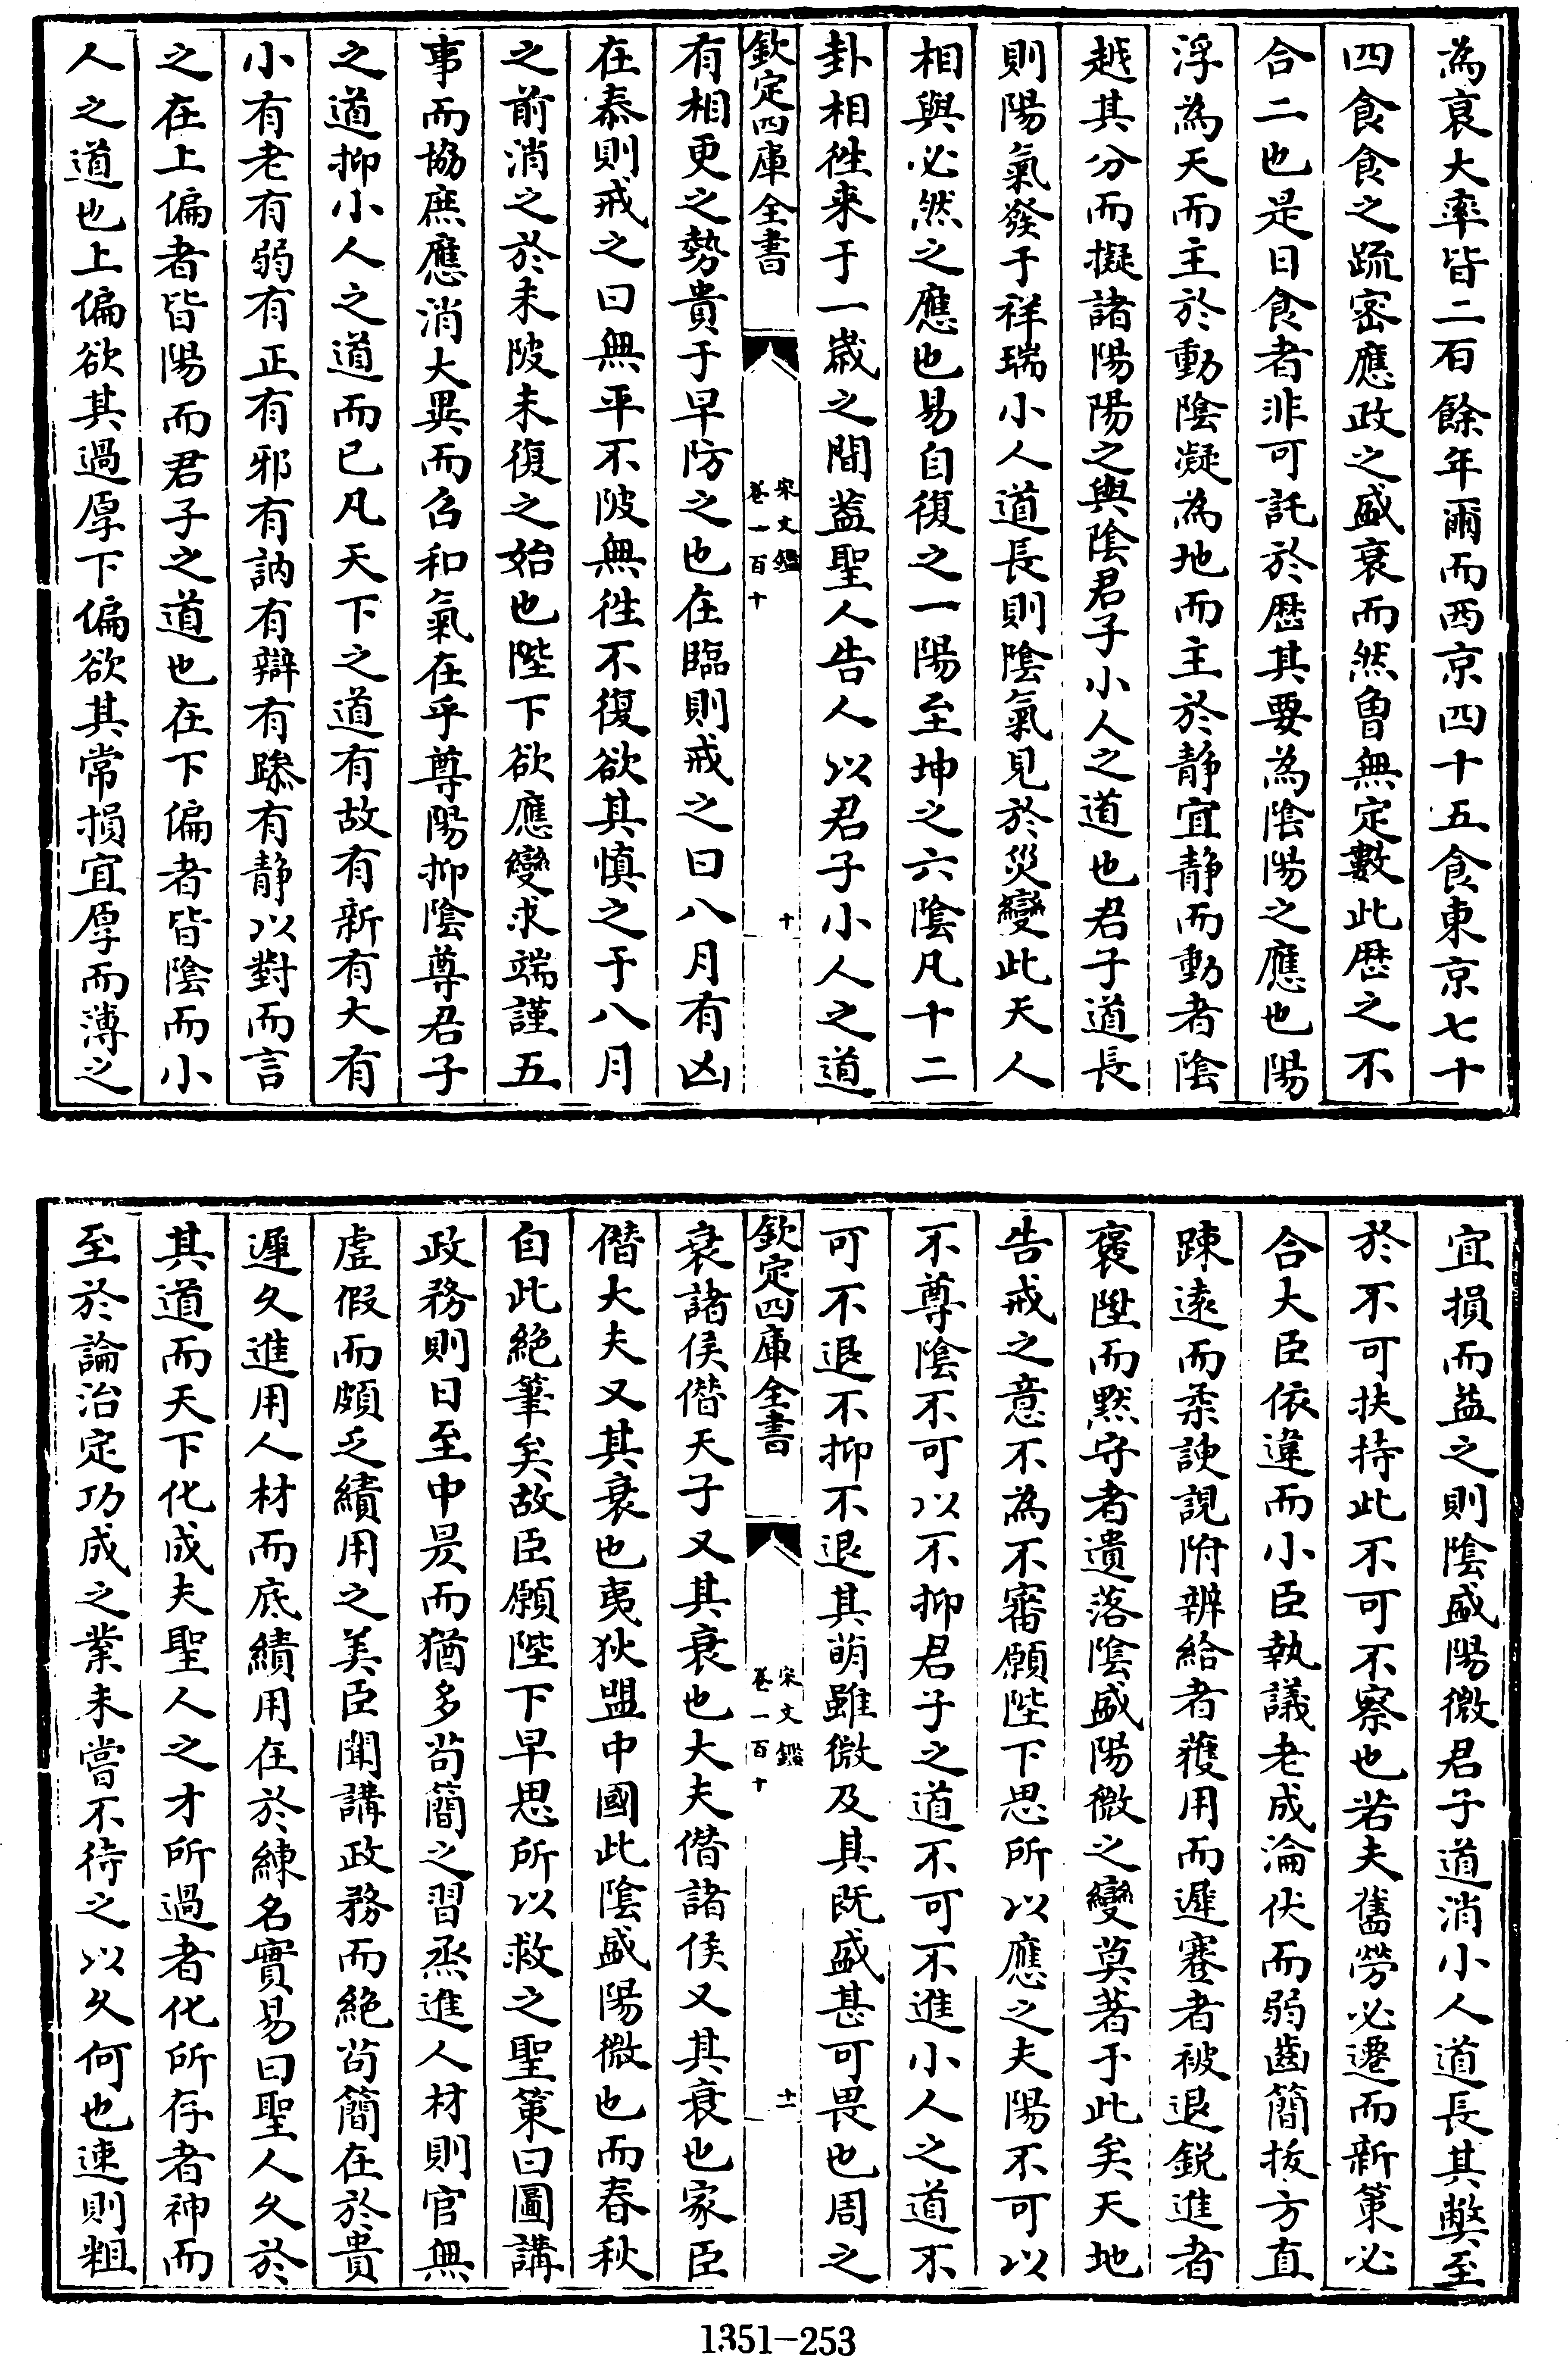 為衰大率皆二百餘年爾而西京四十五食東京七十
四食食之疏密應政之盛衰而然魯無定數此厯之不
合二也是日食者非可託於厯其要為陰陽之應也陽
浮為天而主於動陰凝為地而主於靜宜靜而動者陰
越其分而擬諸陽陽之與陰君子小人之道也君子道長
則陽氣發于祥瑞小人道長則陰氣見於災變此天人
相與必然之應也易自復之一陽至坤之六陰凡十二
卦相徃来于一嵗之間葢聖人告人以君子小人之道
欽定四庫全書
宋文鑑
卷一百十
十
有相更之勢貴于早防之也在臨則戒之曰八月有凶
在泰則戒之曰無平不陂無徃不復欲其慎之于八月
之前消之於未陂未復之始也陛下欲應變求端謹五
事而協庶應消大異而召和氣在乎尊陽抑陰尊君子
之道抑小人之道而已凡天下之道有故有新有大有
小有老有弱有正有邪有訥有辯有躁有静以對而言
之在上偏者皆陽而君子之道也在下偏者皆陰而小
人之道也上偏欲其過厚下偏欲其常損宜厚而薄之
宜損而益之則陰盛陽微君子道消小人道長其弊至
於不可扶持此不可不察也若夫舊勞必遷而新策必
合大臣依違而小臣執議老成淪伏而弱齒簡拔方直
踈逺而柔諛説附辨給者獲用而遲蹇者被退鋭進者
褒陞而黙守者遺落陰盛陽微之變莫著于此矣天地
告戒之意不為不審願陛下思所以應之夫陽不可以
不尊陰不可以不抑君子之道不可不進小人之道不
可不退不抑不退其萌雖微及其既盛甚可畏也周之
欽定四庫全書
宋文鑑
卷一百十
十一
衰諸侯僭天子又其衰也大夫僭諸侯又其衰也家臣
僭大夫又其衰也夷狄盟中國此陰盛陽微也而春秋
自此絶筆矣故臣願陛下早思所以救之聖策曰圖講
政務則日至中昃而猶多茍簡之習烝進人材則官無
虚假而頗乏績用之美臣聞講政務而絶茍簡在於貴
遲久進用人材而底績用在於練名實易曰聖人久於
其道而天下化成夫聖人之才所過者化所存者神而
至於論治定功成之業未嘗不待之以久何也速則粗
1351-253